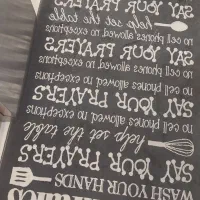 WASH YOUR HANDS
SAY YOUR PRAYERS
help set the table
no cell phones allowed, no exceptions
SAY YOUR PRAYERS
no cell phones allowed, no exceptions
SAY YOUR PRAYERS
no cell phones allowed, no exceptions
SAY YOUR PRAYERS
no cell phones allowed, no exceptions
help set the table
SAY YOUR PRAYERS